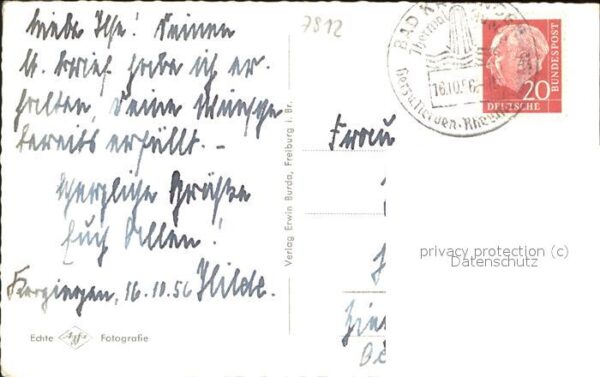 Liebe Ilse! Deinen
lt. Brief habe ich er-
halten, Deine Wünsche
bereits erfüllt. –
Herzliche Grüße
Euch Allen!
16.10.56 Hilde.
Echte Agfa Fotografie
7812
Verlag Erwin Burda, Freiburg i. Br.
BAD
Thermal
16.10.56
Herz Nerven Rheuma
20
DEUTSCHE
BUNDESPOST
Frau
privacy protection (c)
Datenschutz